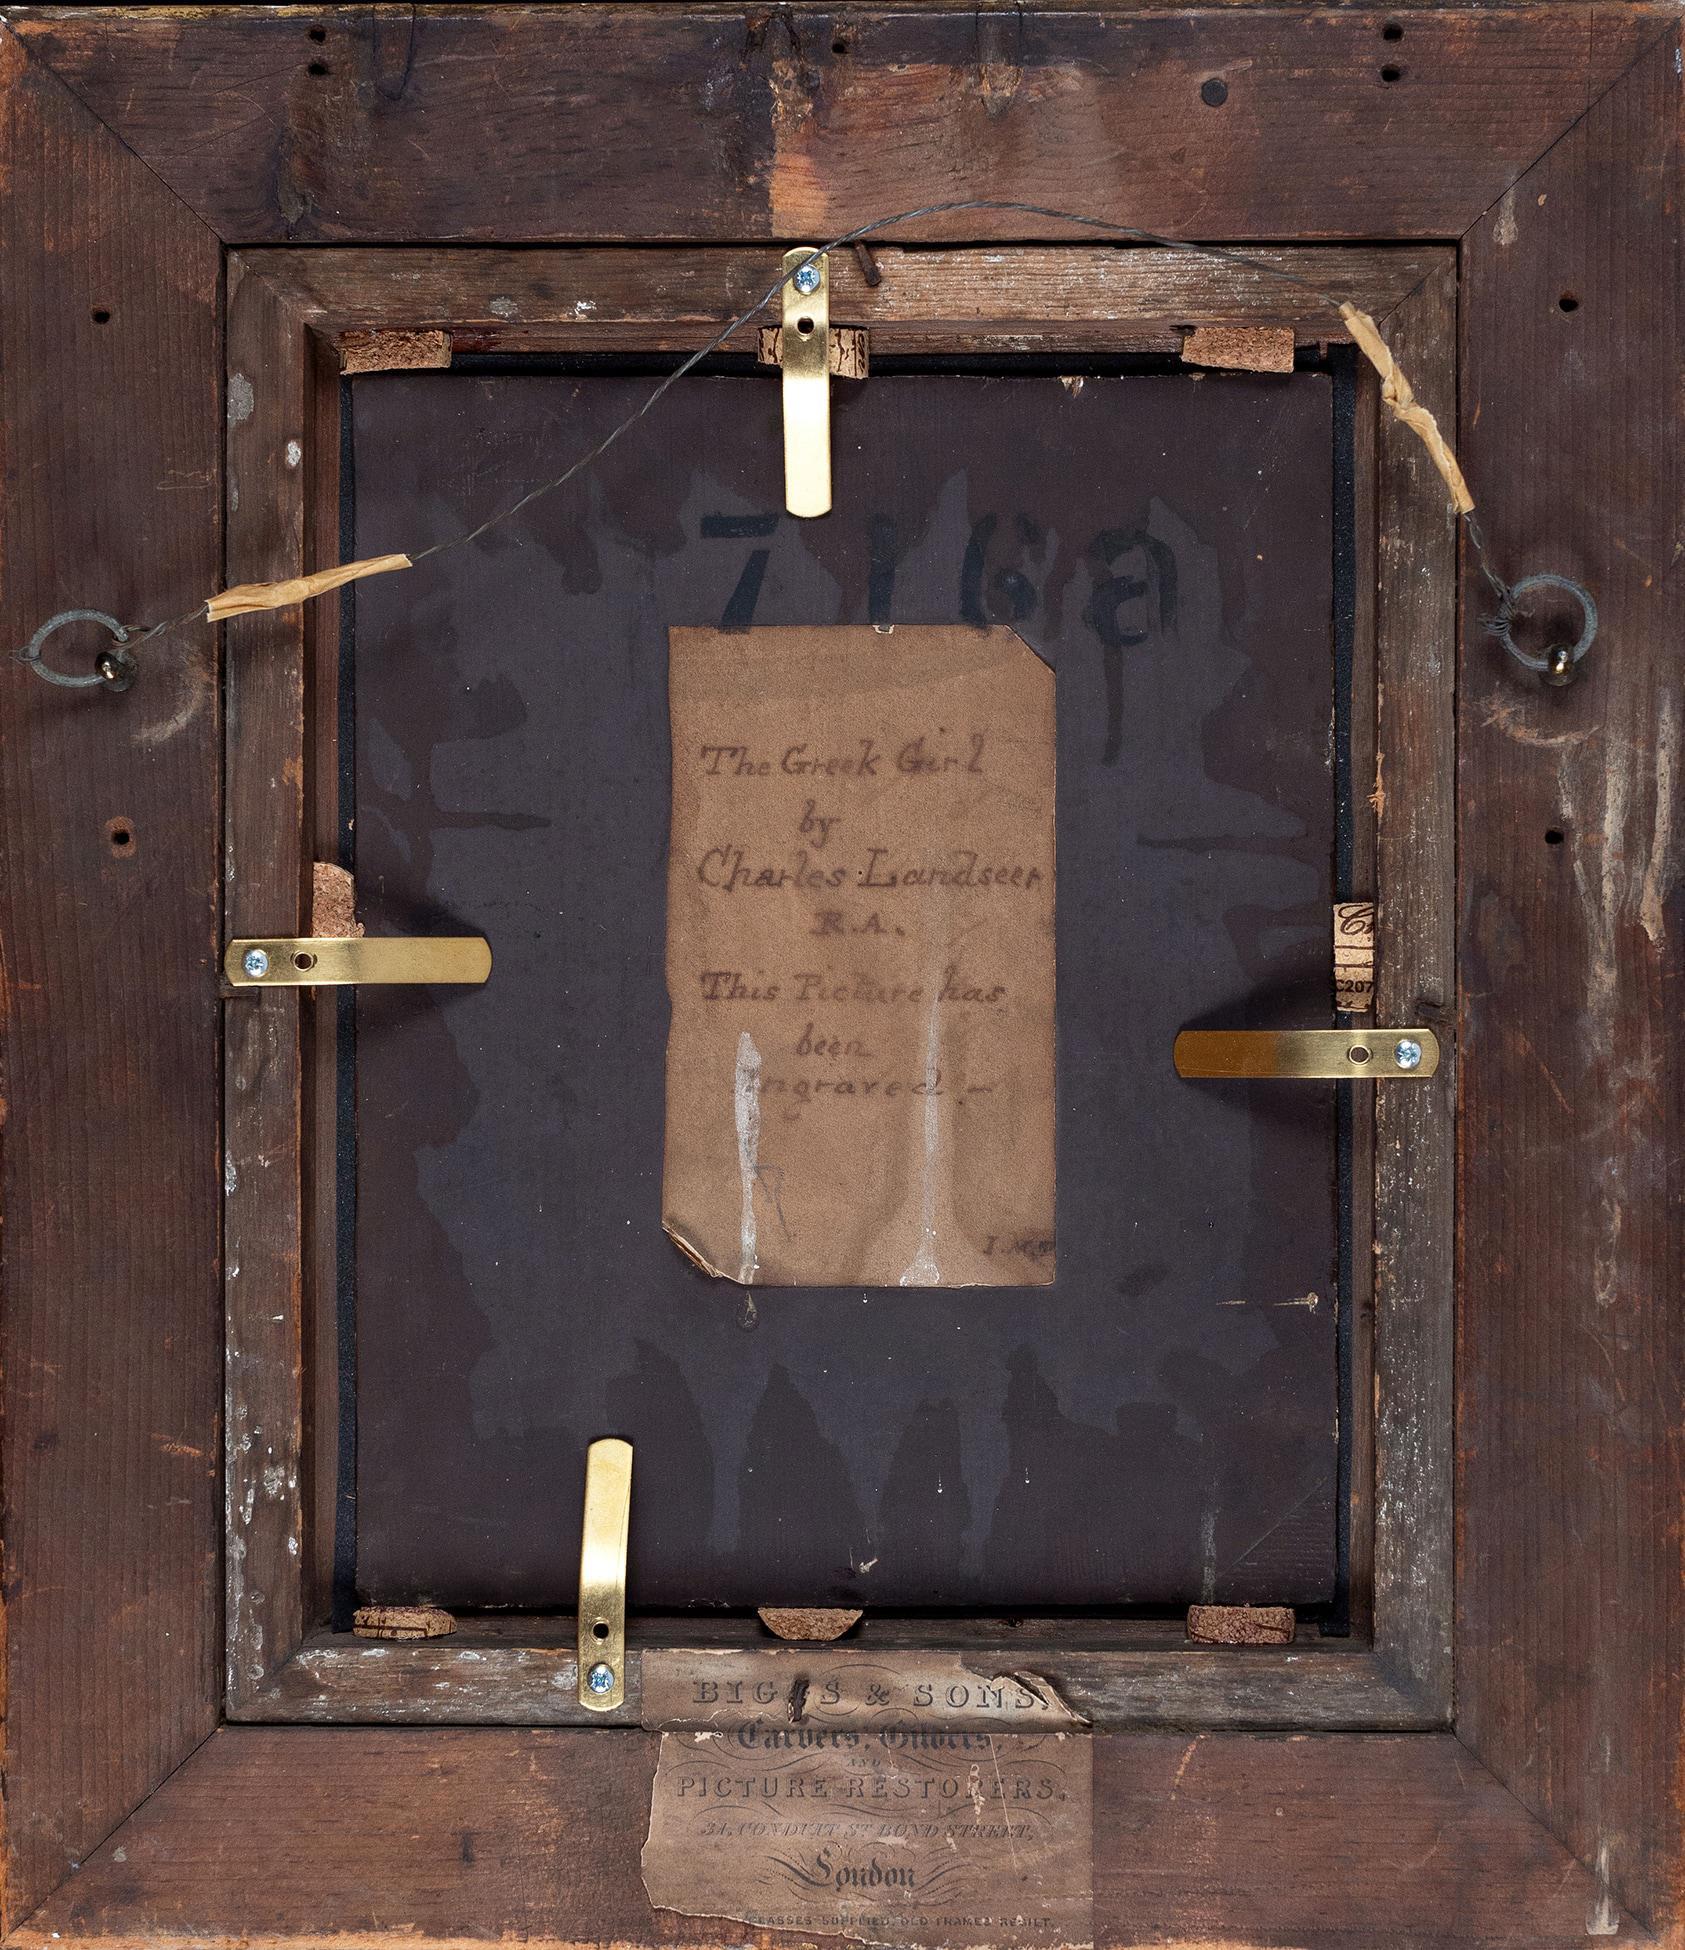 The Greek Girl
by
Charles Landseer
R.A.
This Picture has
been
engraved –
C207
BIGGS & SONS,
Carvers, Gilders,
AND
PICTURE RESTORERS,
31, CONDUIT ST BOND STREET,
London
GLASSES SUPPLIED, OLD FRAMES REGILT.